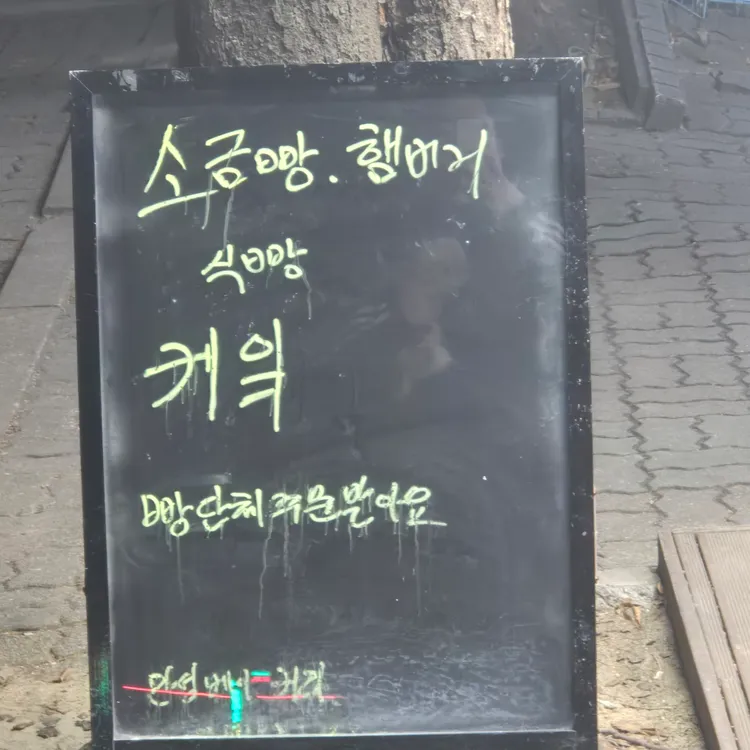 소금빵. 햄버거
식빵
케익
빵단체주문받아요